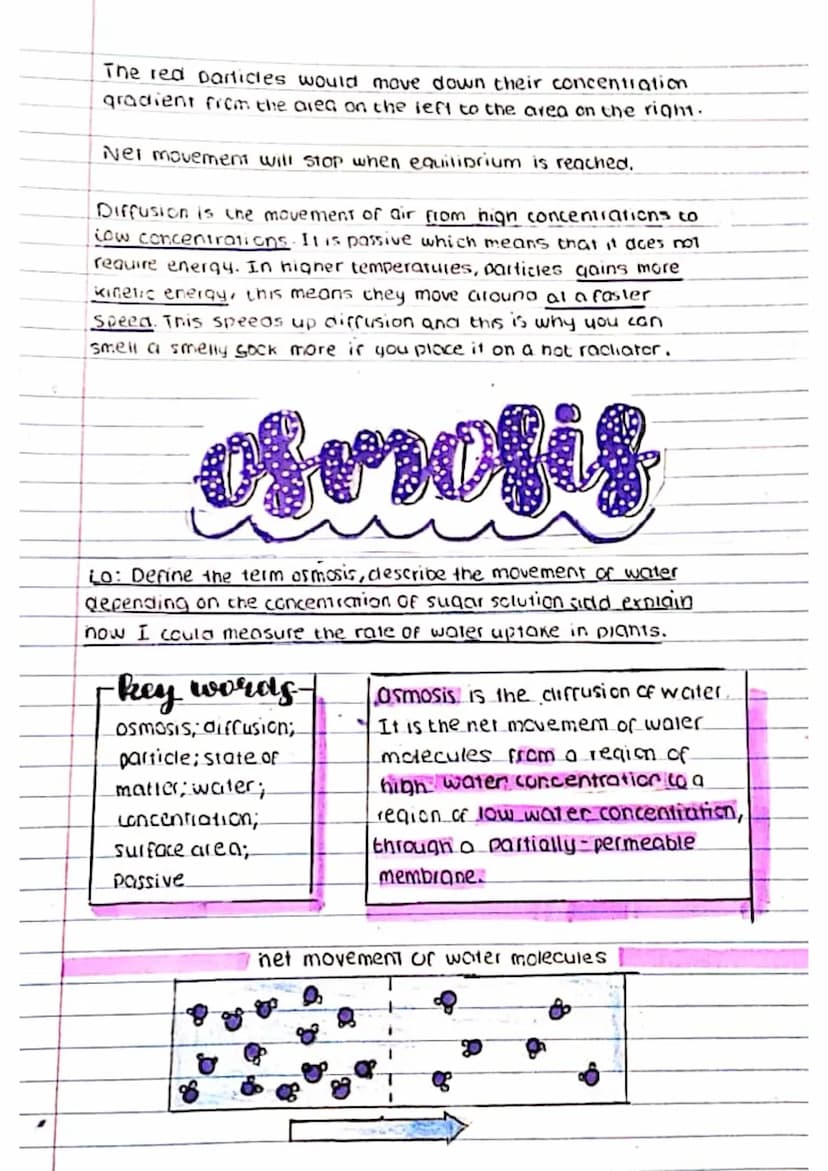 The red particles would move down their concentration
gradient from the area on the left to the area on the right.
Net movement will stop when equilibrium is reached.
Diffusion is the movement of air from high concentrations to
low concentrations. It is passive which means that it does not
require energy. In higher temperatures, particles gains more
kinetic energy, this means they move around at a faster
speed. This speeds up diffusion and this is why you can
smell a smelly sock more if you place it on a hot radiator.
osmosis
LO: Define the term osmosis, describe the movement of water
depending on the concentration of sugar solution and explain
how I could measure the rate of water uptake in plants.
key words
osmosis; diffusion;
particle; state of
matter; water;
concentration;
surface area;
passive
Osmosis is the diffusion of water.
It is the net movement of water
molecules from a region of
high water concentration to a
region of low water concentration,
through a partially-permeable
membrane.
net movement of water molecules